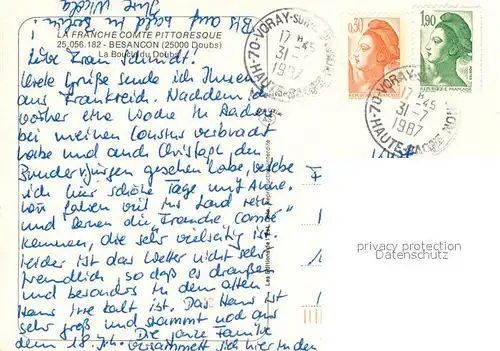 Bis auf bald in Berlin
Ihre Nicola
LA FRANCHE COMTE PITTORESQUE
25.056.182 - BESANCON (25000 Doubs)
La Boucle du Doubs
Liebe Frau Schmidt!
Grüße sende ich Ihnen
aus Frankreich. Nachdem ich
vorher eine Woche in Aachen
bei meinen Cousins verbracht
habe und auch Christoph, den
gesehen habe, verlebe
ich hier schöne Tage mit Anne.
Wir fahren viel ins Land rein
und lernen die "Franche Comté"
kennen, die sehr vielseitig ist.
Leider ist das Wetter nicht sehr
freundlich so daß es draußen
und besonders in dem alten
Haus kalt ist. Das Haus ist
sehr groß und stammt noch aus
dem 18. Jh. Die ganze Familie
versammelt sich hier in den
70-VORAY-SUR-
17 H -45
31-7
1987
HAUTE-SAONE
0,30
1,90
REPUBLIQUE FRANCAISE
70-VORAY-
17 H -45
31-7
1987
HAUTE-SAONE
privacy protection
DDR